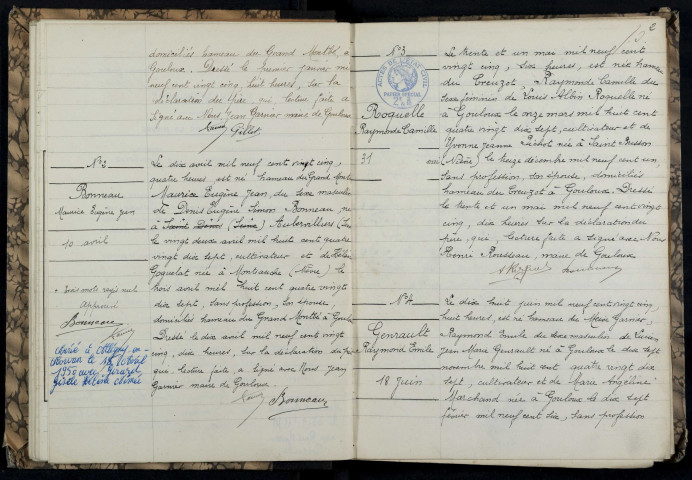 domiciliés hameau du Grand Monthé à
Gouloux. Dressé le premier janvier mil
neuf cent vingt cinq, huit heures, sur la
déclaration du père, qui, lecture faite a
signé avec Nous, Jean Garnier maire de Gouloux
Gillot
N° 2
Bonneau
Maurice Eugène Jean
10 avril
trois mots rayés nuls
Approuvé
Bonneau
Marié à
le 18 avril
1950 avec
Le dix avril mil neuf cent vingt cinq,
quatre heures, est né hameau du Grand Monthé
Maurice Eugène Jean, du sexe masculin
de Denis Eugène Simon Bonneau, né
à Saint Denis (Seine) Aubervilliers
le vingt deux avril mil huit cent quatre
vingt dix sept, cultivateur et de
Goguelat née à Montsauche (Nièvre) le
trois avril mil huit cent quatre vingt
dix sept, sans profession, son épouse
domiciliés hameau du Grand Monthé à
Dressé le dix avril mil neuf cent vingt
cinq, dix heures, sur la déclaration du père
qui, lecture faite, a signé avec Nous Jean
Garnier maire de Gouloux.
Bonneau
3
N° 3
ACTES DE L'ETAT CIVIL
PAPIER SPECIAL
Roquelle
Raymonde Camille
31 mai
Le trente et un mai mil neuf cent
vingt cinq, six heures, est née hameau
du Creuzot, Raymonde Camille du
sexe féminin de Louis Albin Roquelle né
à Gouloux le onze mars mil huit cent
quatre vingt dix sept, cultivateur et de
Yvonne Jeanne née à Saint Brisson
(Nièvre) le treize décembre mil neuf cent un,
sans profession, son épouse, domiciliés
hameau du Creuzot à Gouloux. Dressé
le trente et un mai mil neuf cent vingt
cinq, dix heures sur la déclaration du
père, qui, lecture faite a signé avec Nous
Rousseau, maire de Gouloux
N° 4
Genrault
Raymond Emile
18 Juin
Le dix huit juin mil neuf cent vingt cinq,
huit heures, est né hameau de
Raymond Emile du sexe masculin de
Jean Marie Genrault né à Gouloux le dix sept
novembre mil huit cent quatre vingt dix
sept, cultivateur et de Marie Angéline
Marchand née à Gouloux le dix sept
février mil neuf cent six, sans profession